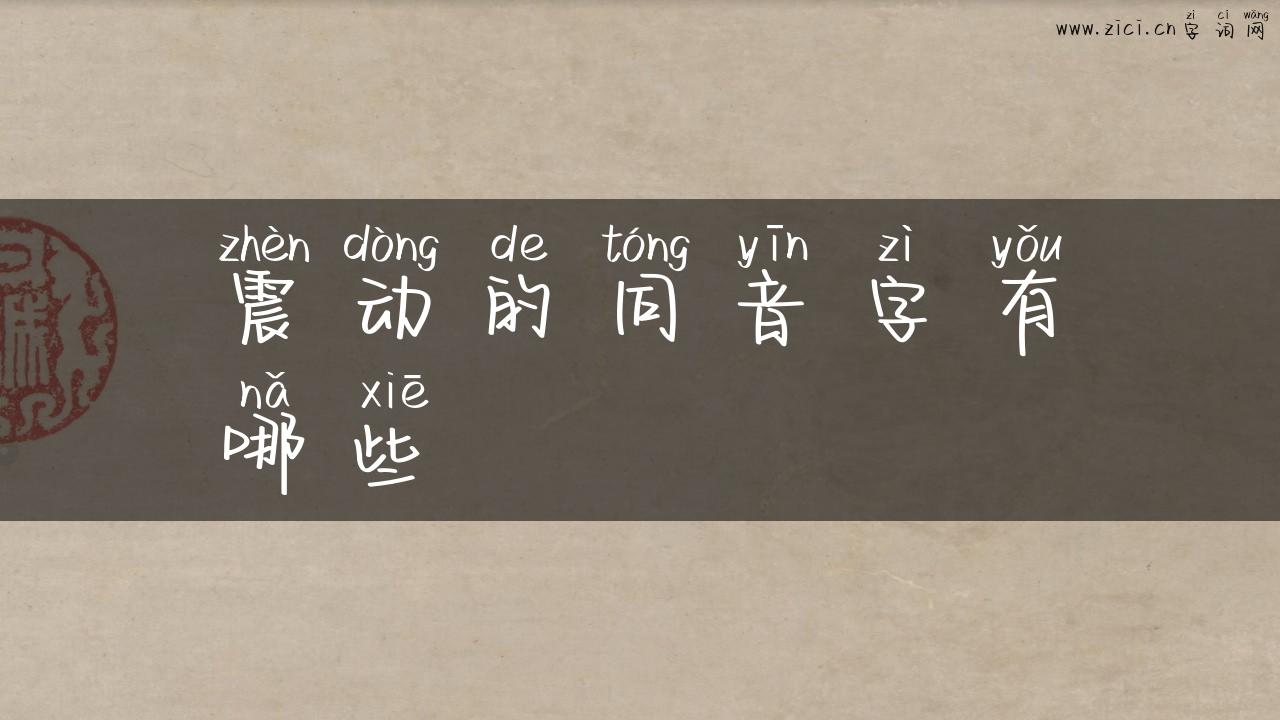 zì cí wǎng
www.zici.cn 字词网
zhèn dòng de tóng yīn zì yǒu
震动的同音字有
nǎ xiē
哪些